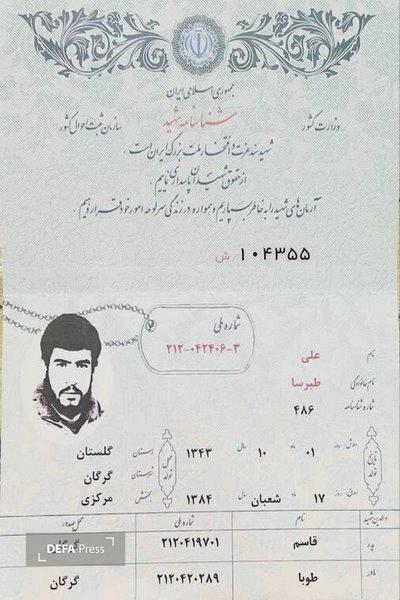 جمهوری اسلامی ایران
وزارت کشور
شناسنامه شهید
سازمان ثبت احوال کشور
شهید سند عزت و افتخار ملت بزرگ ایران است.
از حقوق شهیدان پاسداری نماییم.
آرمان‌های شهید را به خاطر بسپاریم و همواره در زندگی سرلوحه امور خود قرار دهیم.
۱۰۴۳۵۵ ش
شماره ملی
۲۱۲-۰۴۲۴۰۶-۳
نام علی
نام خانوادگی طبرسا
شماره شناسنامه ۴۸۶
تاریخ تولد
(ش) روز ۰۱ ماه ۱۰ سال ۱۳۴۳
(ق) روز ۱۷ ماه شعبان سال ۱۳۸۴
محل تولد
استان گلستان
شهرستان گرگان
بخش مرکزی
والدین شهید نام شماره ملی محل صدور
پدر قاسم ۲۱۲۰۴۱۹۷۰۱
مادر طوبا ۲۱۲۰۴۲۰۲۸۹ گرگان
DEFA Press